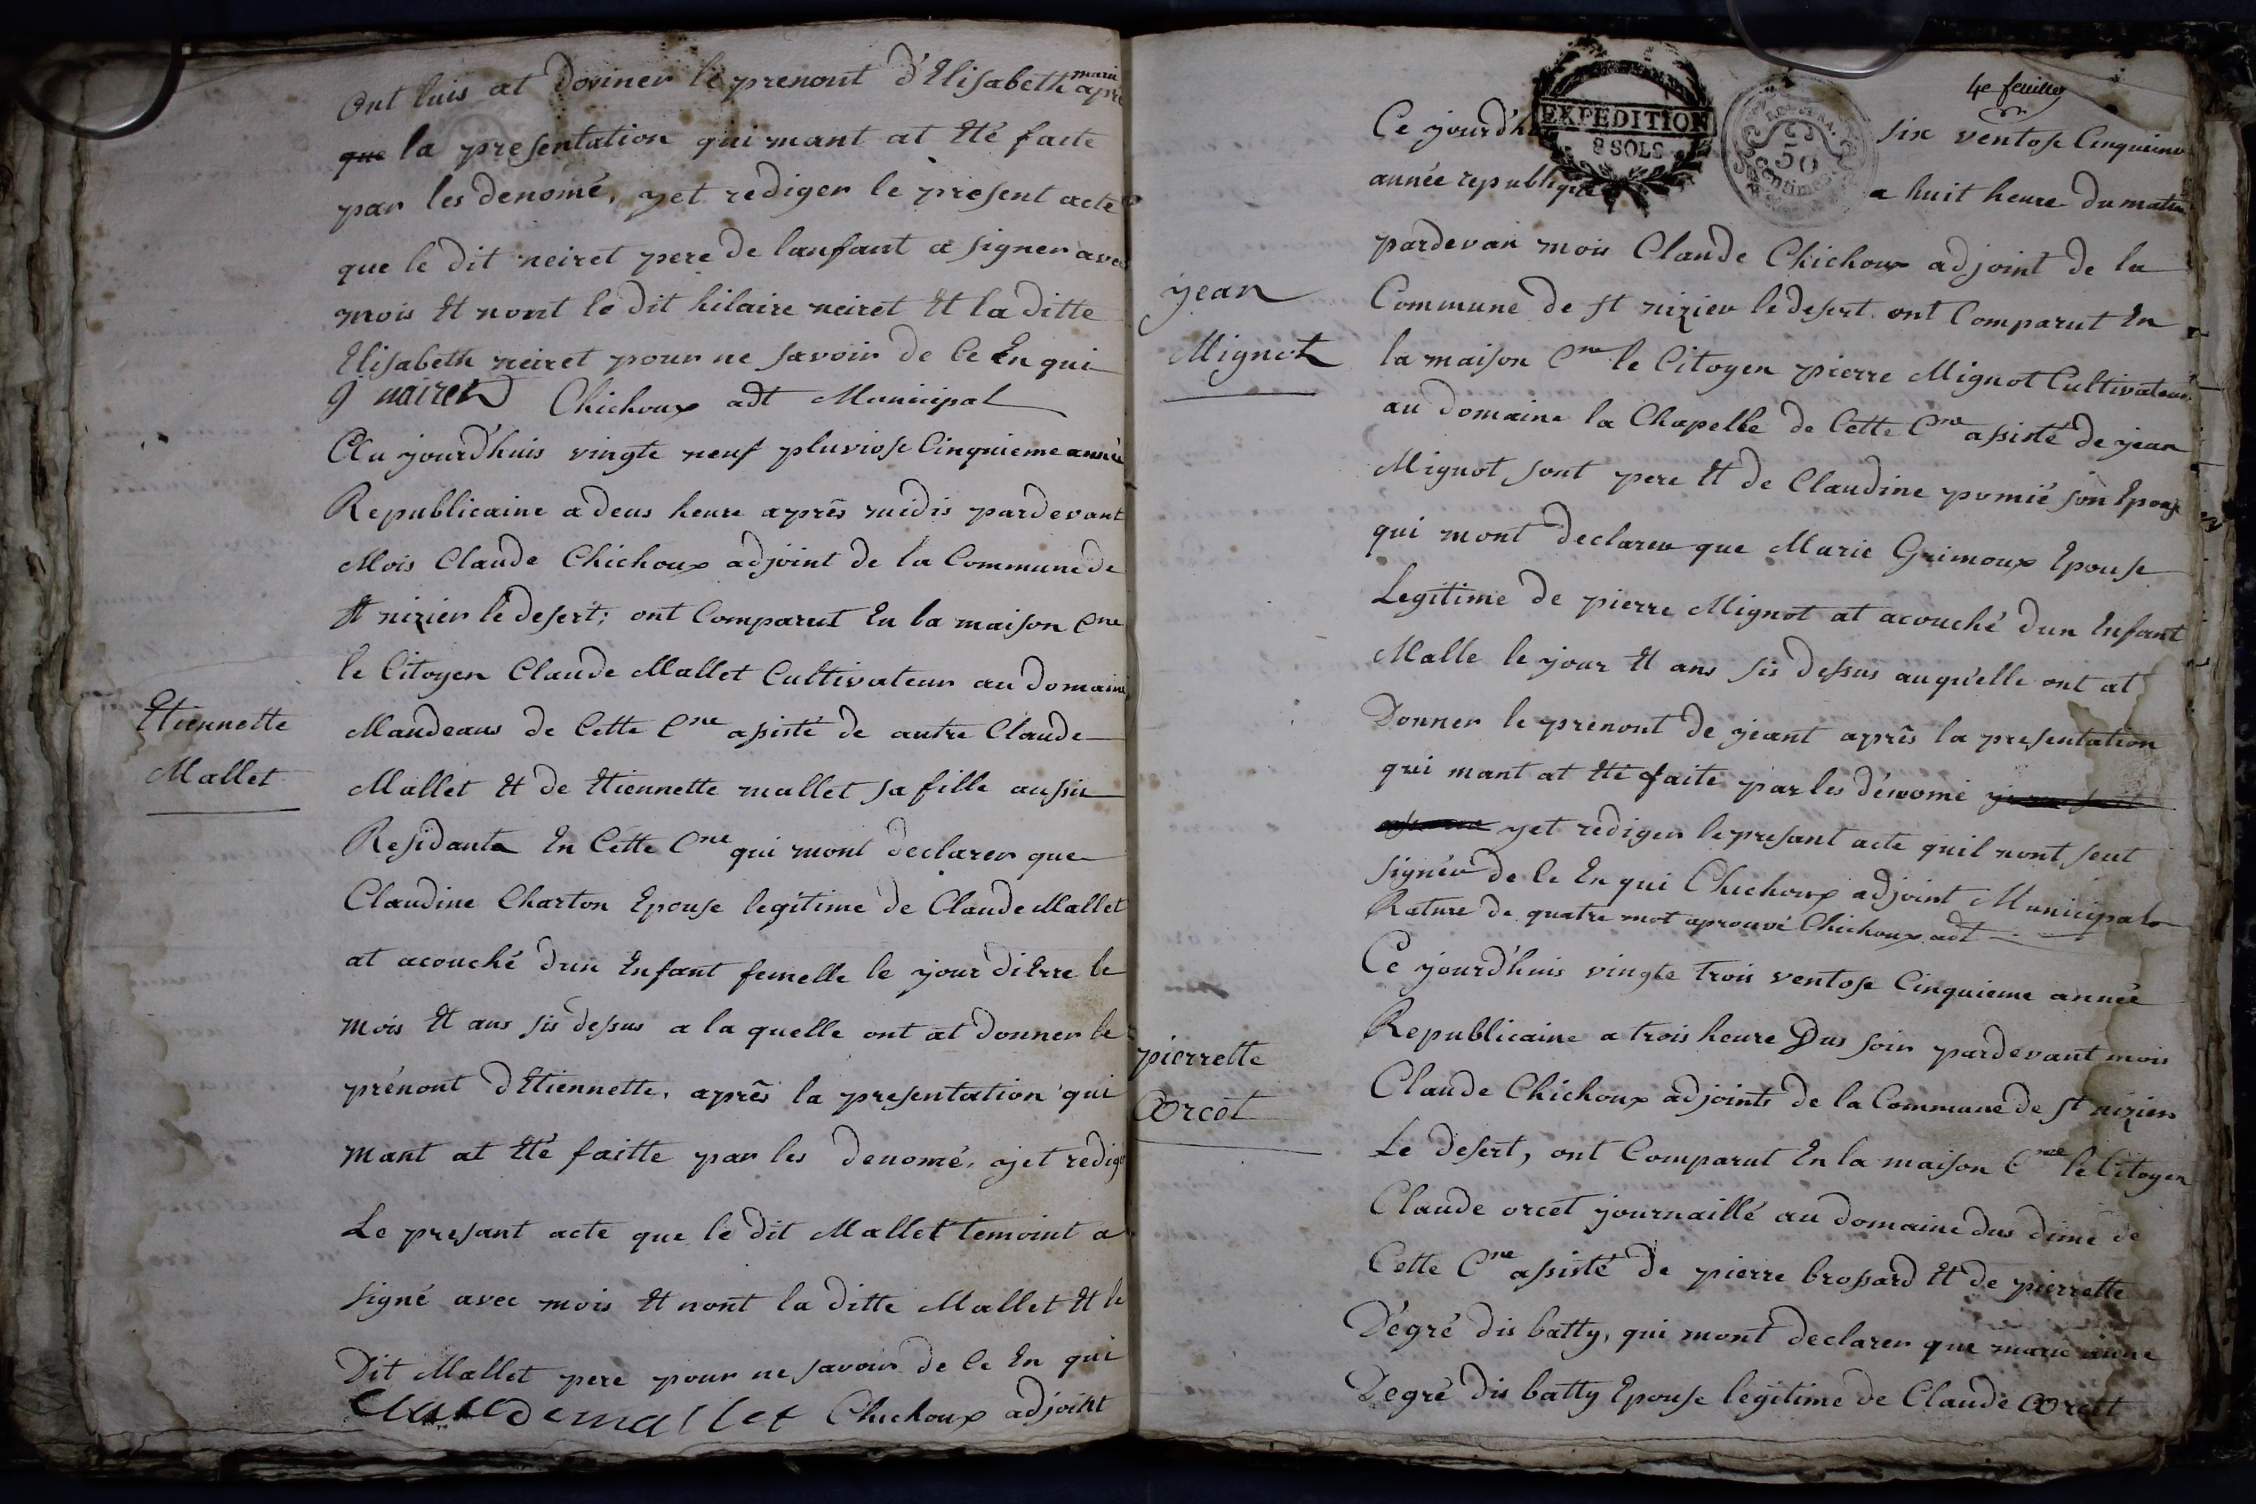 ont luis at donner le prenont d'Elisabeth marie apré
que la presentation qui mant at Eté faite
par les denomé, yet rediger le present acte
que le dit neiret pere de lanfant a signer avec
mois Et nont le dit hilaire neiret Et la ditte
Elisabeth neiret pour ne savoir de Ce En qui
g nairet Chichoux adt Municipal
Au jourd'huis vingte neuf pluviose Cinquieme année
Republicaine a deus heure après midis pardevant
Mois Claude Chichoux adjoint de la Commune de
St nizier le desert; ont Comparut En la maison Cne
le Citoyen Claude Mallet Cultivateur au domaine
Etiennette
Mallet
Mandeaus de Cette Cne asisté de autre Claude
Mallet Et de Etiennette mallet sa fille aussis
Residante En Cette Cne qui mont declarer que
Claudine Charton Epouse legitime de Claude Mallet
at acouché dun Enfant femelle le jour dierre le
mois Et ans sis desus a la quelle ont at donner le
prénont d'Etiennette, après la presentation qui
mant at Eté faitte par les denomé, yet rediger
Le presant acte que le dit Mallet temoint a
signé avec mois Et nont la ditte Mallet Et le
Dit Mallet pere pour ne savoir de Ce En qui
Claude mallet Chichoux adjoint
4e feuillez
EXPEDITION
8 SOLS
50
Centimes
Ce jourd'h six ventose Cinquieme
année republique a huit heure du matin
pardevan mois Claude Chichoux adjoint de la
jean
Mignot
Commune de St nizier le desert ont Comparut En
la maison Cne le Citoyen pierre Mignot Cultivateur
au domaine la Chapelle de Cette Cne asisté de jean
Mignot sont pere Et de Claudine pomié son Epouse
qui mont declarer que Marie Grimoux Epouse
Legitime de pierre Mignot at acouché dun Enfant
Malle le jour Et ans sis desus auqu'elle ont at
Donner le prenont de jeant après la presentation
qui mant at Eté faite par les dénomé
yet rediger le presant acte quil nont seut
signér de Ce En qui Chichoux adjoint Municipal
Rature de quatre mot aprouvé Chichoux adt
Ce jourd'huis vingte trois ventose Cinquieme année
Republicaine a trois heure Dus soir pardevant mois
pierrette
Orcet
Claude Chichoux adjoints de la Commune de St nizier
Le desert, ont Comparut En la maison Cne le Citoyen
Claude orcet journaillé au domaine dus dime de
Cette Cne asisté de pierre brossard Et de pierrette
Dégré dis batty, qui mont declarer que marie anne
Degré dis batty Epouse legitime de Claude Orcet